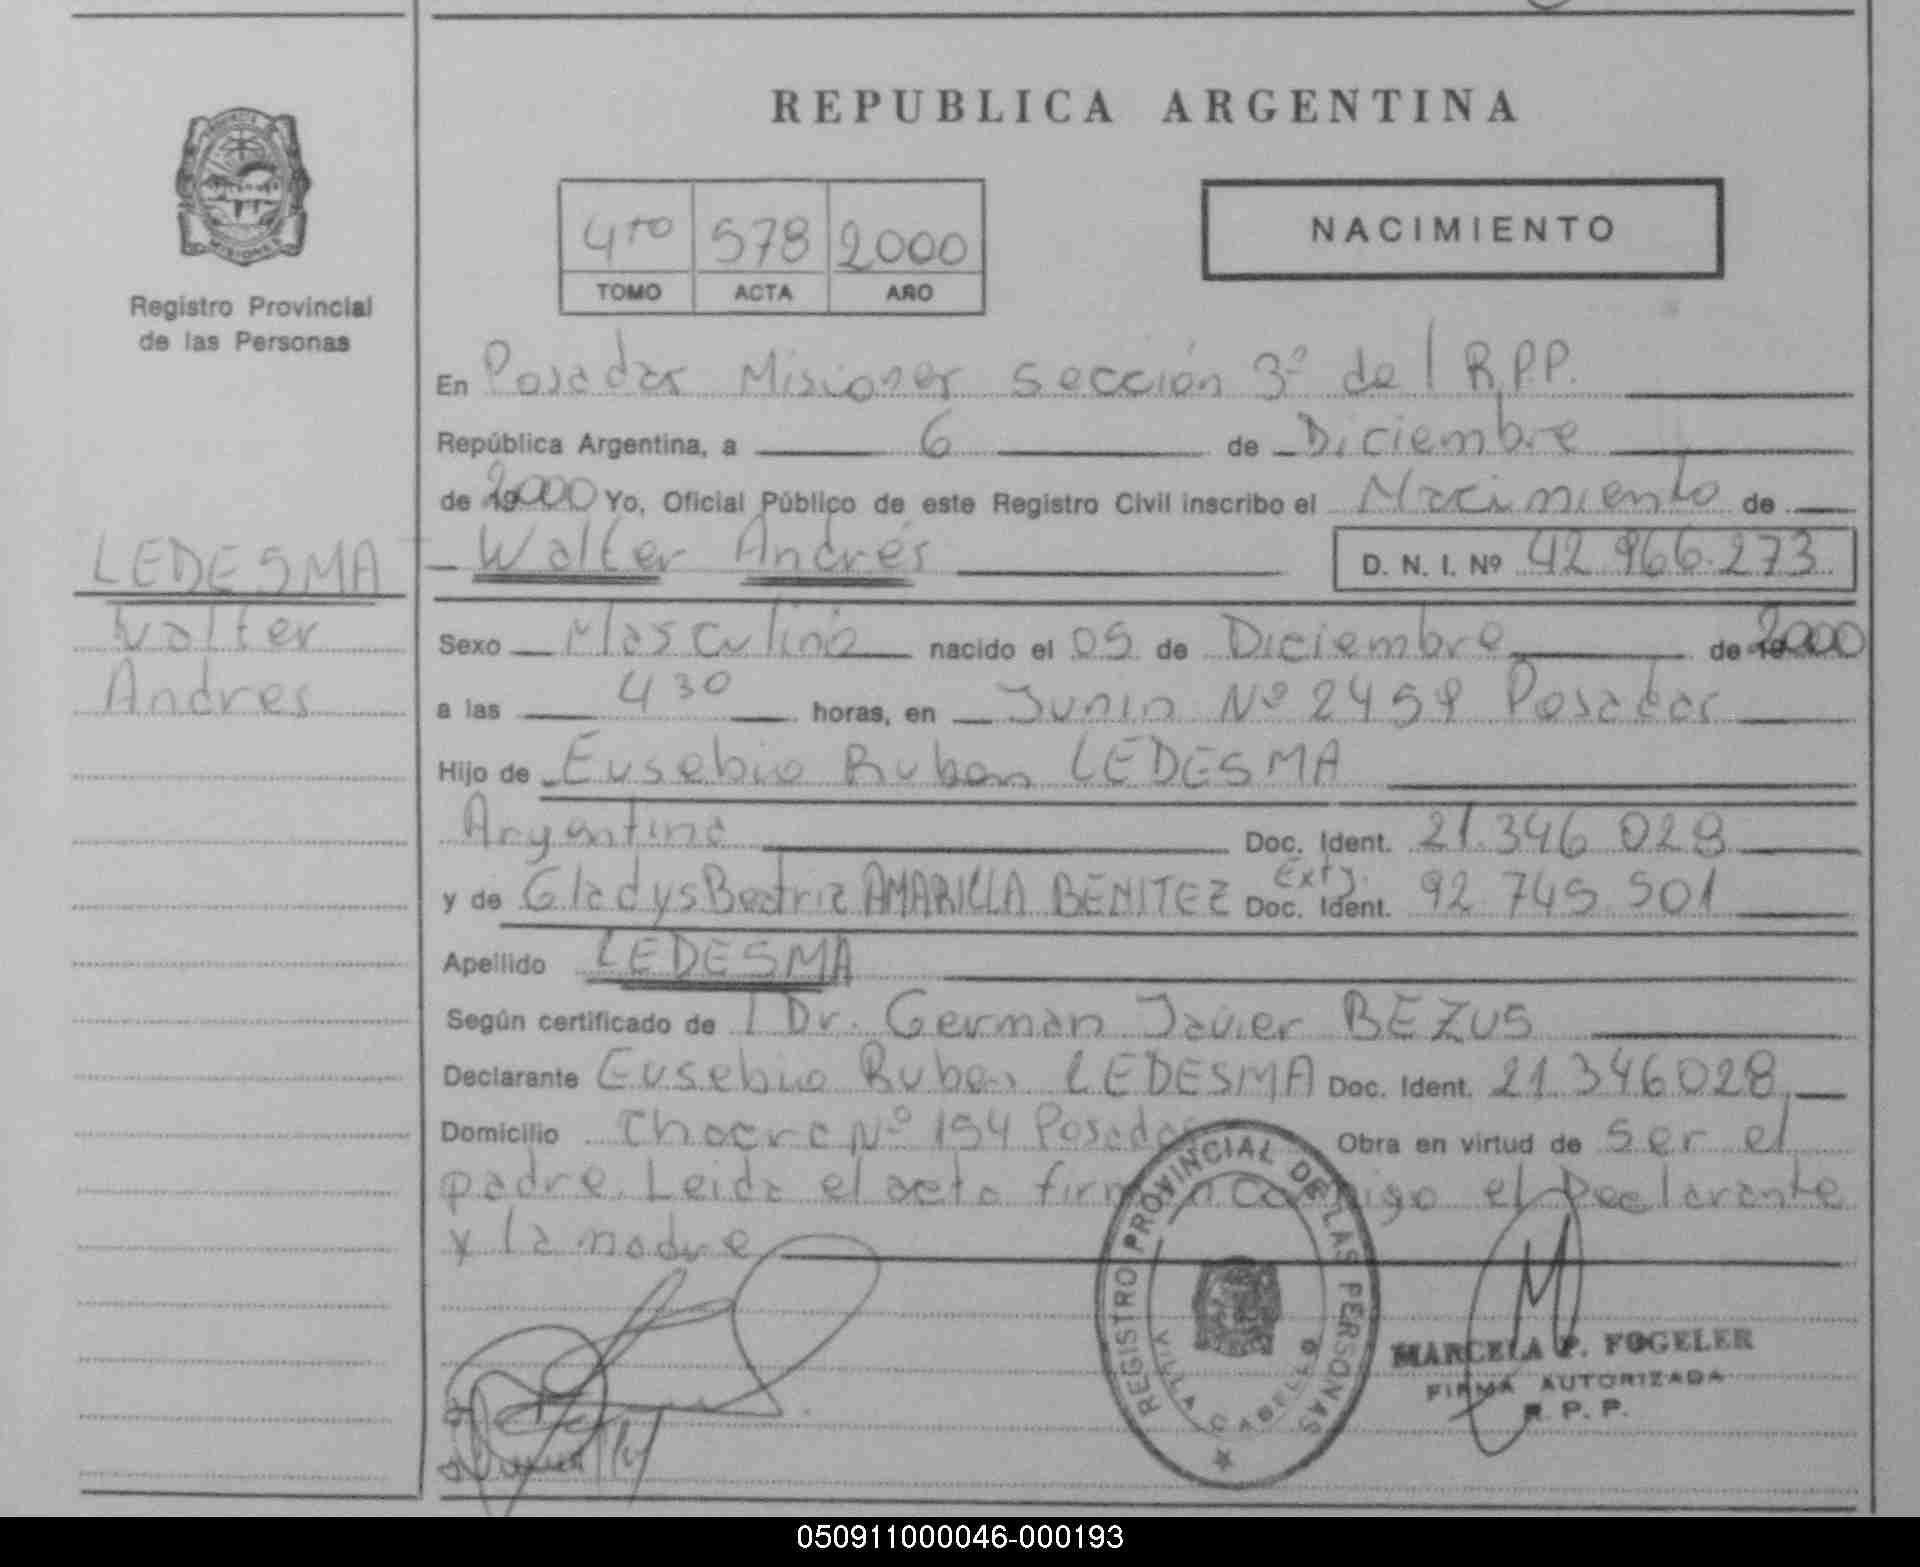 REPUBLICA ARGENTINA
PROVINCIA DE
MISIONES
Registro Provincial
de las Personas
4to 578 2000
TOMO ACTA AÑO
NACIMIENTO
En Posadas Misiones sección 3ª del R.P.P.
República Argentina, a 6 de Diciembre
de 2000 Yo, Oficial Público de este Registro Civil inscribo el Nacimiento de
LEDESMA
Walter
Andres
Walter Andrés D. N. I. Nº 42.966.273
Sexo Masculino nacido el 05 de Diciembre de 2000
a las 4 30 horas, en Junin Nº 2459 Posadas
Hijo de Eusebio Ruben LEDESMA
Argentino Doc. Ident. 21.346.028
y de Gladys Beatriz AMARILLA BENITEZ Extj. Doc. Ident. 92.745.501
Apellido LEDESMA
Según certificado del Dr. German Javier BEZUS
Declarante Eusebio Ruben LEDESMA Doc. Ident. 21.346028
Domicilio Chacra Nº 154 Posadas Obra en virtud de ser el
padre. Leida el acta firman conmigo el Declarante
y la madre
REGISTRO PROVINCIAL DE LAS PERSONAS
VILLA CABELLO
MARCELA P. FOGELER
FIRMA AUTORIZADA
R. P. P.
050911000046-000193